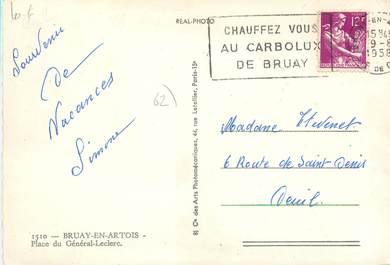 10 F
REAL-PHOTO
CHAUFFEZ VOUS
AU CARBOLUX
DE BRUAY
12F
15 H45
9-8
1958
DE
Souvenir
De
Vacances
Simone
62)
8) Cie des Arts Photomécaniques, 44, rue Letellier, Paris-15e
Madame Thevenet
6 Route de Saint Denis
Deuil.
1510 - BRUAY-EN-ARTOIS -
Place du Général-Leclerc.